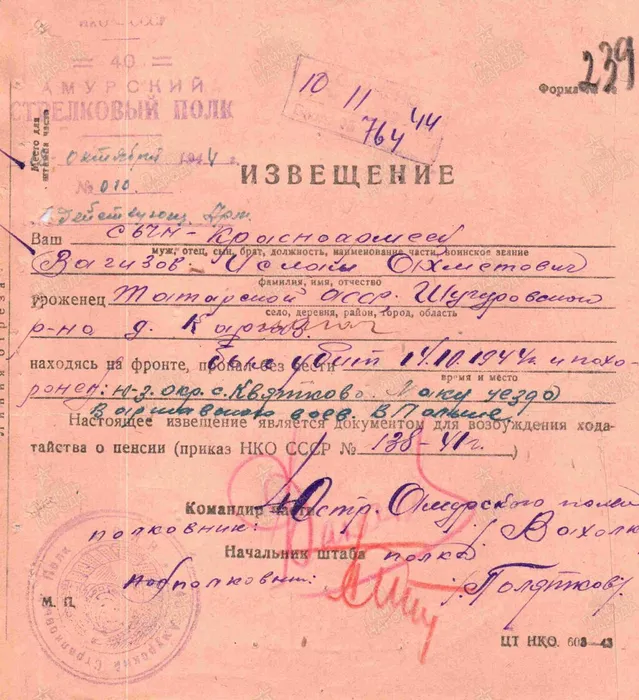 239
= 40 =
АМУРСКИЙ
СТРЕЛКОВЫЙ ПОЛК
10 11 44
764
Форма
Место для штампа части
октября 1944 г.
№ 010
Действующ. Арм.
ИЗВЕЩЕНИЕ
Ваш сын-красноармеец
муж, отец, сын, брат, должность, наименование части, воинское звание
Вагизов Ислам Ахметович
фамилия, имя, отчество
уроженец Татарской АССР. Шугуровского
село, деревня, район, город, область
р-на д.
находясь на фронте, пропал без вести был убит 14.10.1944г. и похо-
время и место
ронен: ю-з. окр. с. Квятково. Маку уезда
Варшавского воев. В Польше
Настоящее извещение является документом для возбуждения хода-
тайства о пенсии (приказ НКО СССР № 138-41г.)
Командир части 40 стр. Амурского полка
полковник: /
Начальник штаба полка
подполковник: /
М. П.
ЦТ НКО. 603—43
Линия отреза